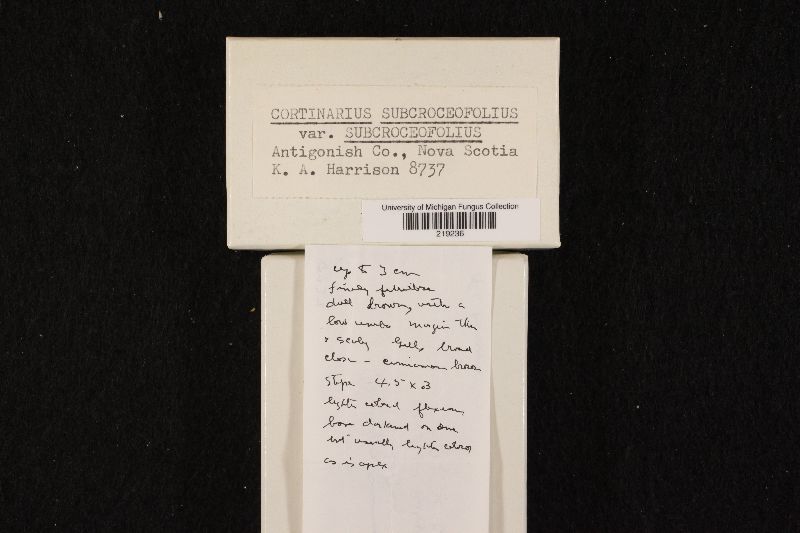 CORTINARIUS SUBCROCEOFOLIUS
var. SUBCROCEOFOLIUS
Antigonish Co., Nova Scotia
K. A. Harrison 8737
University of Michigan Fungus Collection
219236
up to 3 cm
finely fibrillose
dull brown with a
low umbo margin thin
& scaly Gills broad
close - cinnamon brown
stipe 4.5 x .3
lighter colored flexuous
base darkened on some
but usually lighter colored
as is apex